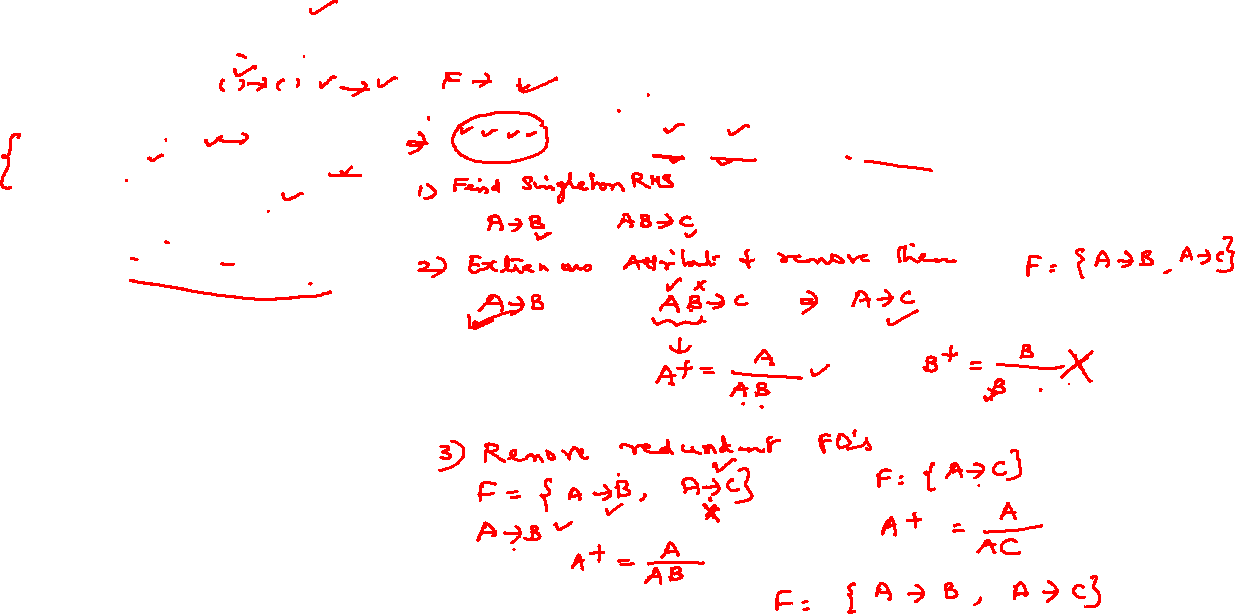 ( ) → ( ) → F →
⇒
1) Find Singleton RHS
A → B AB → C
2) Attribute & remove them F = { A → B, A → C}
A → B AB → C ⇒ A → C
A⁺ = A / AB B⁺ = B / B
3) Remove redundant FD's
F = { A → B, A → C} F = { A → C}
A → B A⁺ = A / AC
A⁺ = A / AB
F = { A → B, A → C}